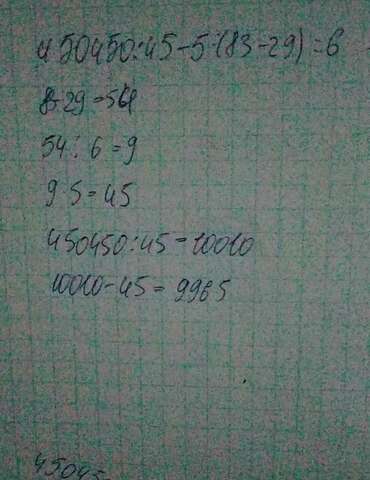 450450:45-5·(83-29)=6
83-29=54
54:6=9
9·5=45
450450:45=10010
10010-45=9965
45045